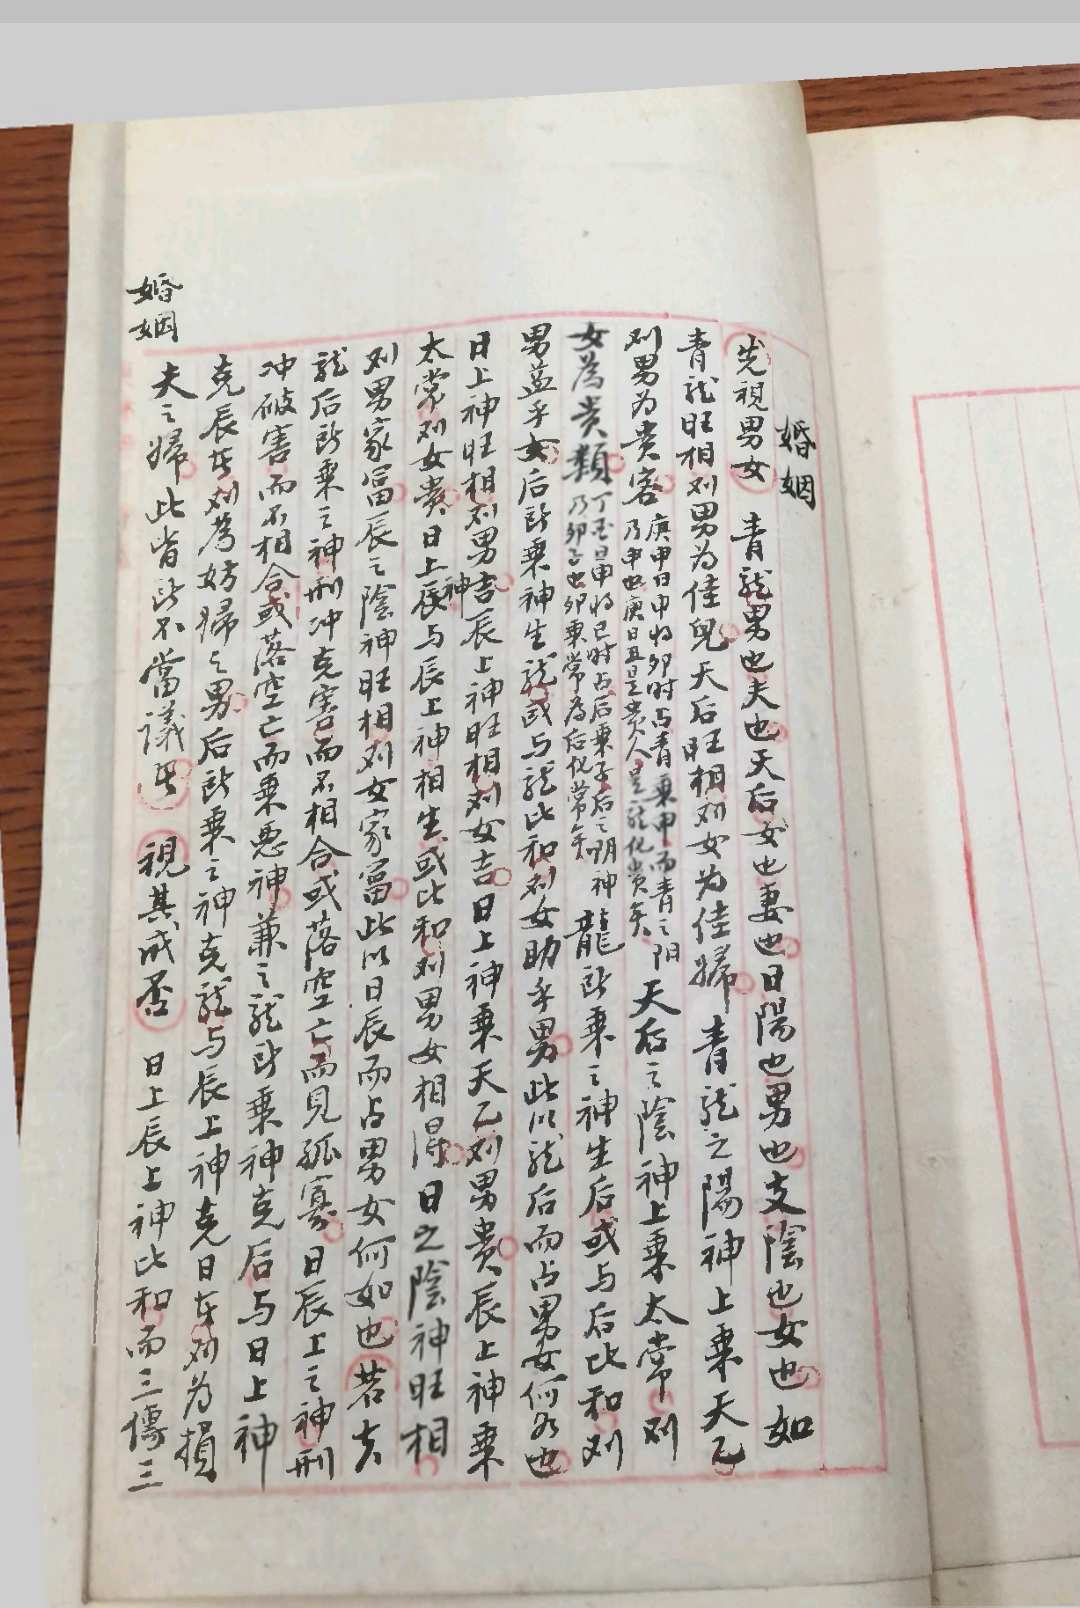 婚姻
先視男女　青龍男也夫也天后女也妻也日陽也男也支陰也女也如
青龍旺相刘男为佳兒天后旺相刘女为佳婦青龍之陽神上乗天乙
刘男为贵客
庚申日申将卯时占青乗申而青之阳
乃申也庚日丑是贵人是龍化贵矣
天后之陰神上乗太常刘
女為贵類
将巳时占后乗子后之阴神
乃卯子也卯乗常為后化常矣
龍所乗之神生后或与后比和刘
男益乎女后所乗神生龍或与龍比和刘女助乎男此以龍后而占男女何如也
日上神旺相刘男吉辰上神旺相刘女吉日上神乗天乙刘男贵辰上神乗
太常刘女贵日上神辰与辰上神相生或比和刘男女相得日之陰神旺相
刘男家富辰之陰神旺相刘女家富此以日辰而占男女何如也若夫
龍后所乗之神刑冲克害而不相合或落空亡而見孤寡日辰上之神刑
冲破害而不相合或落空亡而乗悪神兼之龍所乗神克后与日上神
克辰者刘為妨婦之男后所乗之神克龍与辰上神克日者刘为損
夫之婦此皆所不當議者　視其成否　日上辰上神比和而三傳三
婚姻